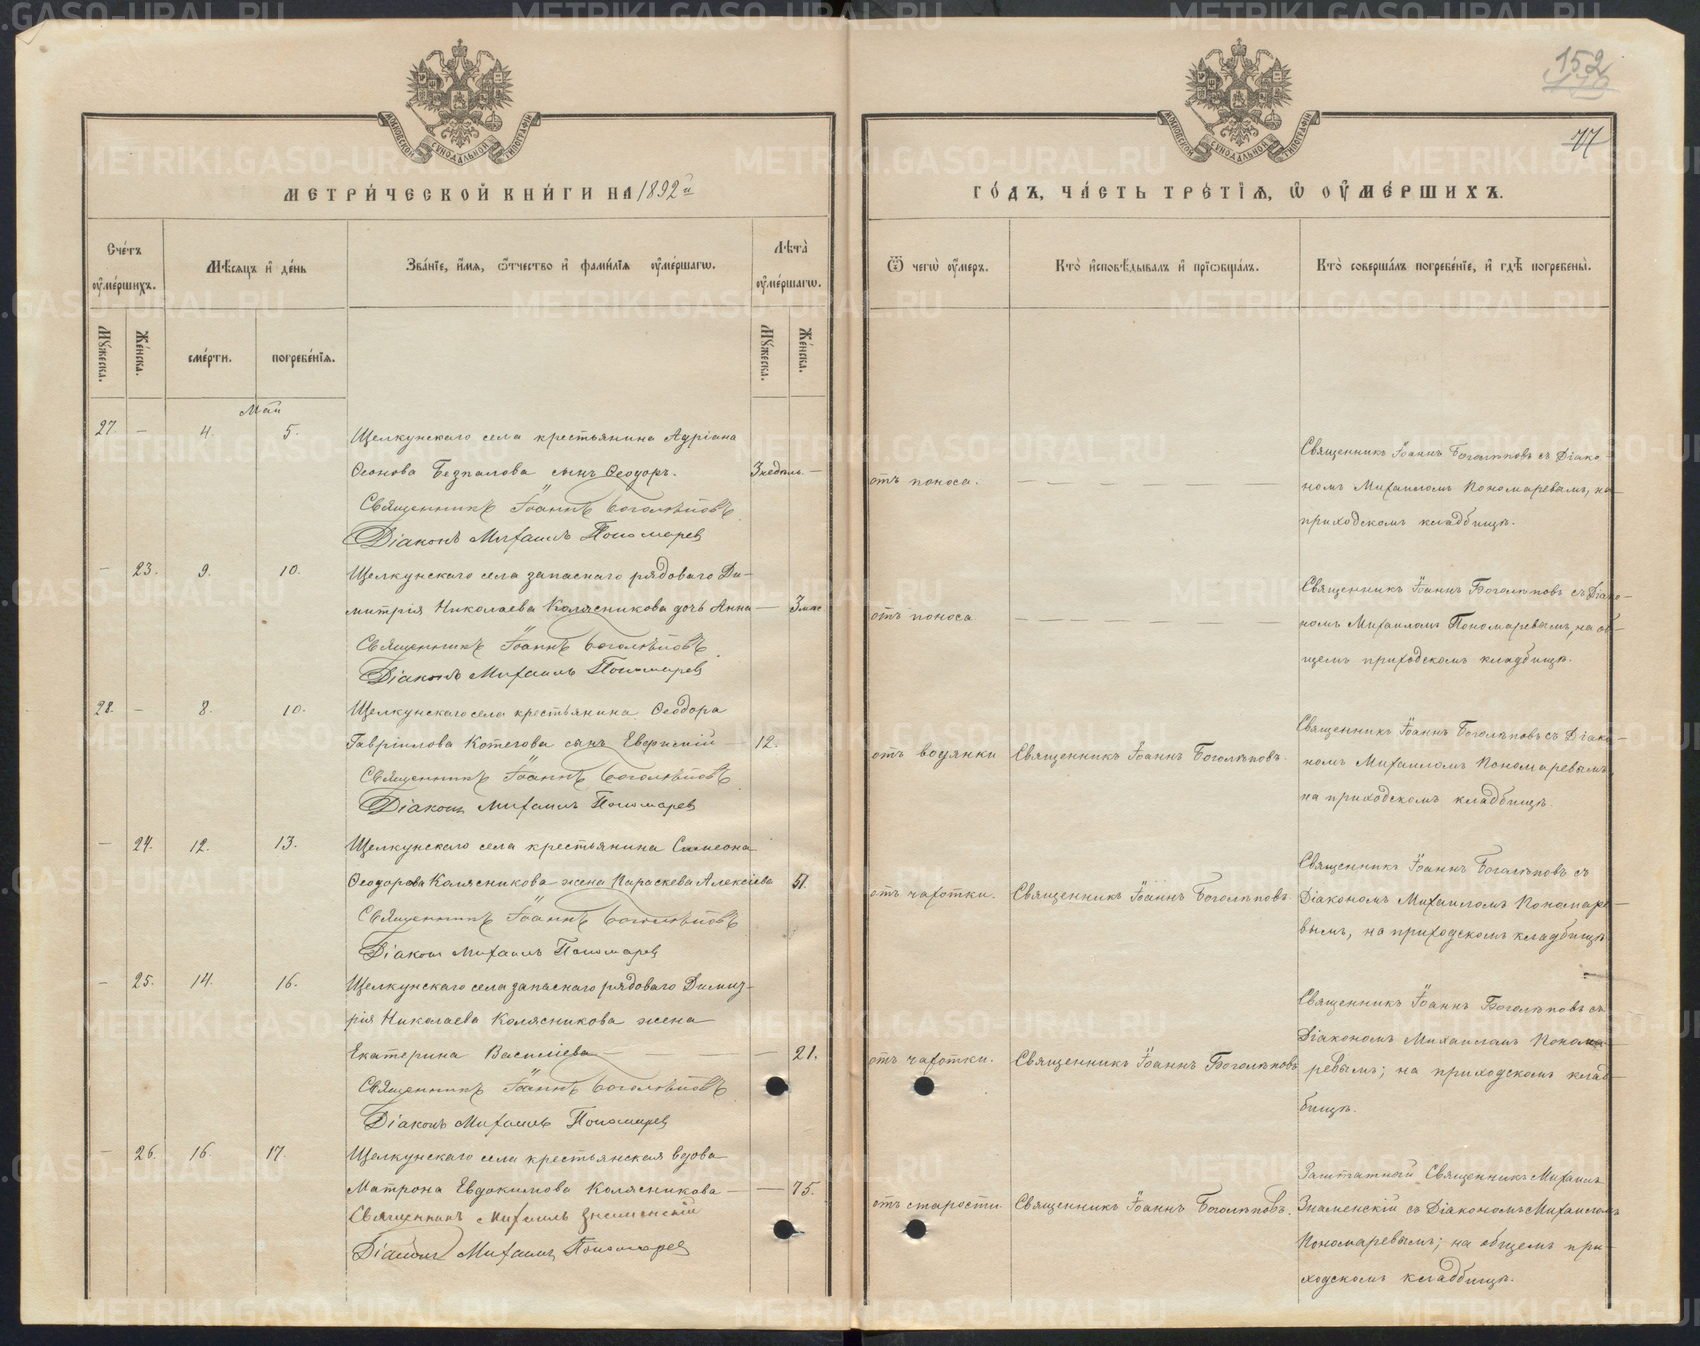 152
77
МЕТРИ́ЧЕСКОЙ КНИ́ГИ НА 1892й
ГО́ДЪ, ЧА́СТЬ ТРЕ́ТІѦ, Ѿ ОУМЕ́РШИХЪ.
Сче́тъ оуме́ршихъ.
Мѣ́сяцъ и де́нь
Зва́нїе, и́мя, ѻ́тчество и фами́лїя оуме́ршагѡ.
Лѣта̀ оуме́ршагѡ.
Ѿ чегѡ̀ оу́меръ.
Кто̀ и́сповѣ́дывалъ и́ прїѡбща́лъ.
Кто̀ соверша́лъ погребе́нїе, и́ гдѣ̀ погребены̀.
Му́жеска.
Же́нска.
сме́рти.
погребе́нїя.
Му́жеска.
Же́нска.
Май
27. — 4. 5. Щелкунскаго села крестьянина Адріана
Ѳеонова Безпалова сынъ Ѳеодоръ. 3 недѣль —
Священникъ Іоаннъ Боголѣповъ
Діаконъ Михаилъ Пономарев
отъ поноса. — — — — — —
Священникъ Іоаннъ Боголѣповъ съ Діако-
номъ Михаиломъ Пономаревымъ, на
приходскомъ кладбищѣ.
— 23. 9. 10. Щелкунскаго села запаснаго рядоваго Ди-
митрія Николаева Колясникова дочь Анна — 3 мѣс
Священникъ Іоаннъ Боголѣповъ
Діаконъ Михаилъ Пономарев
отъ поноса — — — — — —
Священникъ Іоаннъ Боголѣповъ съ Діако-
номъ Михаиломъ Пономаревымъ, на об-
щемъ приходскомъ кладбищѣ.
28. — 8. 10. Щелкунскаго села крестьянина Ѳеодора
Гавріилова Котегова сынъ Евфимій — 12.
Священникъ Іоаннъ Боголѣповъ
Діаконъ Михаилъ Пономарев
отъ водянки Священникъ Іоаннъ Боголѣповъ.
Священникъ Іоаннъ Боголѣповъ съ Діако-
номъ Михаиломъ Пономаревымъ,
на приходскомъ кладбищѣ.
— 24. 12. 13. Щелкунскаго села крестьянина Симеона
Ѳеодорова Колясникова жена Параскева Алексіева 51.
Священникъ Іоаннъ Боголѣповъ
Діаконъ Михаилъ Пономарев
отъ чахотки. Священникъ Іоаннъ Боголѣповъ.
Священникъ Іоаннъ Боголѣповъ съ
Діакономъ Михаиломъ Пономаре-
вымъ, на приходскомъ кладбищѣ.
— 25. 14. 16. Щелкунскаго села запаснаго рядоваго Димит-
рія Николаева Колясникова жена
Екатерина Василіева — — — 21.
Священникъ Іоаннъ Боголѣповъ
Діаконъ Михаилъ Пономарев
отъ чахотки. Священникъ Іоаннъ Боголѣповъ
Священникъ Іоаннъ Боголѣповъ съ
Діакономъ Михаиломъ Понома-
ревымъ; на приходскомъ клад-
бищѣ.
— 26. 16. 17. Щелкунскаго села крестьянская вдова
Матрона Евдокимова Колясникова — — 75.
Священникъ Михаилъ Знаменскій
Діаконъ Михаилъ Пономарев
отъ старости. Священникъ Іоаннъ Боголѣповъ.
Заштатный Священникъ Михаилъ
Знаменскій съ Діакономъ Михаиломъ
Пономаревымъ; на общемъ при-
ходскомъ кладбищѣ.